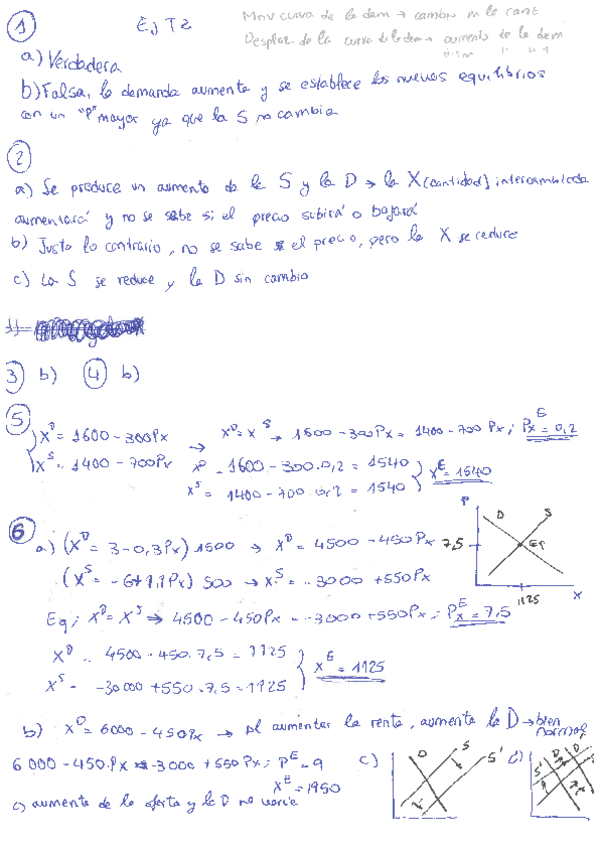 ① Ej T2
Mov curva de la dem → cambio en la cant
Desplaz. de la curva de la dem → aumento de la dem
a) Verdadera
b) Falsa, la demanda aumenta y se establece los nuevos equilibrios
con un "P" mayor ya que la S no cambia
②
a) Se produce un aumento de la S y la D → la X (cantidad) intercambiada
aumentará y no se sabe si el precio subirá o bajará
b) Justo lo contrario, no se sabe el precio, pero la X se reduce
c) La S se reduce y la D sin cambio
③ b) ④ b)
⑤
X^D = 1600 - 300Px → X^D = X^S → 1600 - 300Px = 1400 - 700 Px ; Px^E = 0,2
X^S = 1400 - 700Px X^D = 1600 - 300·0,2 = 1540
X^S = 1400 - 700·0,2 = 1540 } X^E = 1540
⑥
a) (X^D = 3 - 0,3Px) 1500 → X^D = 4500 - 450Px
(X^S = -6+1,1Px) 500 → X^S = -3000 + 550Px
P D S 7,5 Eq 1125 X
Eq ; X^D = X^S → 4500 - 450Px = -3000 + 550Px ; Px^E = 7,5
X^D = 4500 - 450·7,5 = 1125
X^S = -30000 + 550·7,5 = 1125 } X^E = 1125
b) X^D = 6000 - 450Px → Al aumentar la renta, aumenta la D → bien normal
6000 - 450·Px = -3000 + 550Px ; P^E = 9
X^E = 1950
c) aumento de la oferta y la D no varía
c) D S S'
d) S' D D'